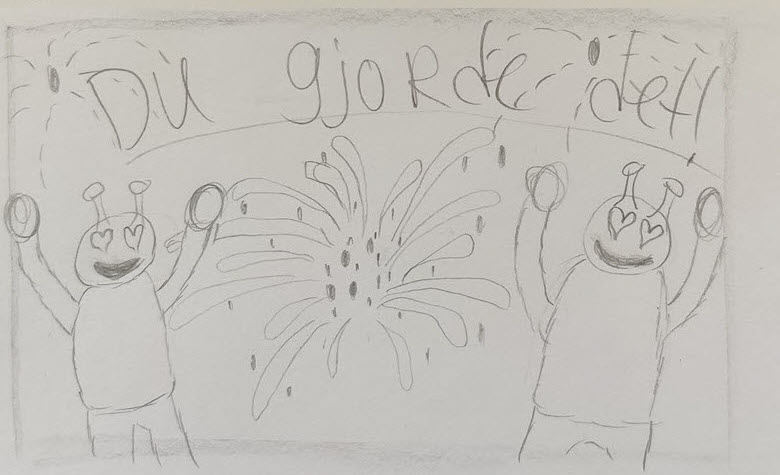 Du gjorde det!